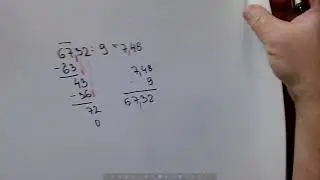 67,32 : 9 = 7,48
-63
43
-36
72
0
7,48
9
67,32